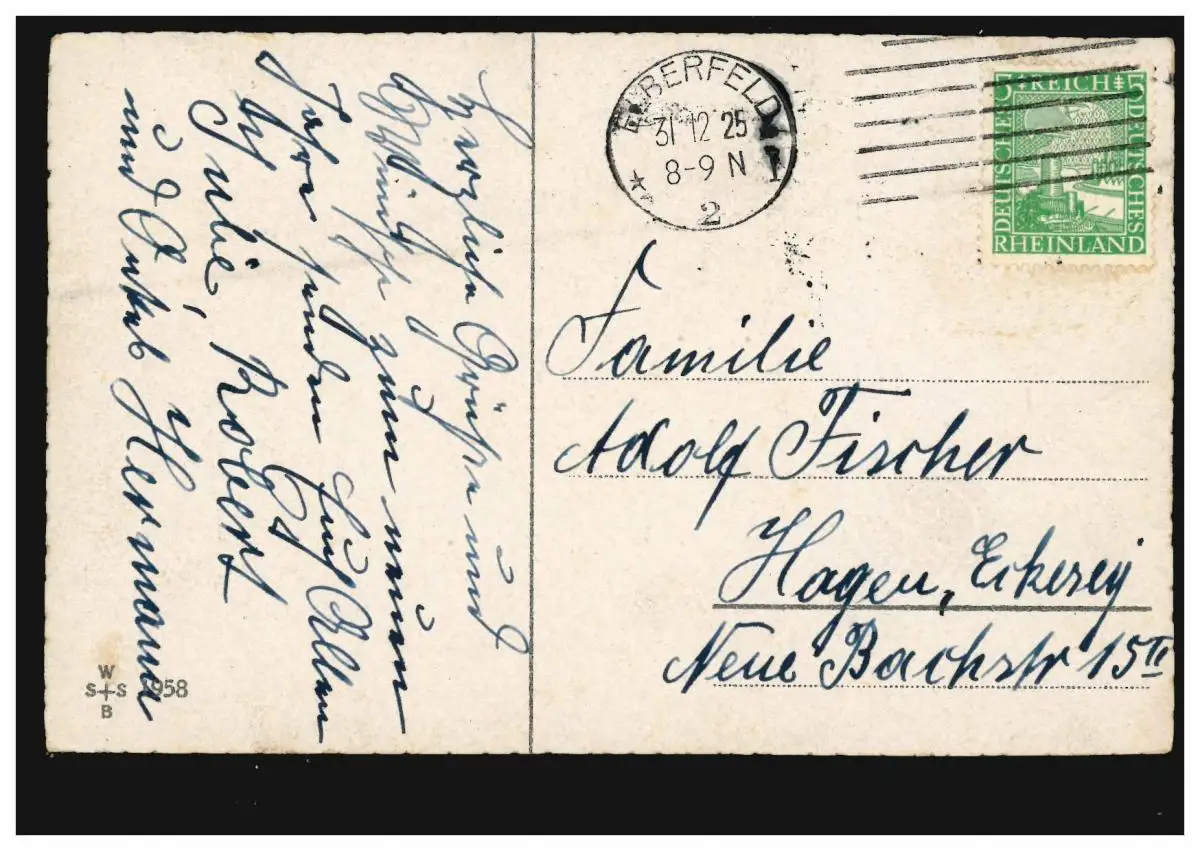 Herzliche Grüße und
Wünsche zum neuen
Jahre senden Euch Allen
Julie, Robert
und Onkel Hermann
W
S S 1958
B
ELBERFELD 1
31 12 25
8-9 N
2
5 REICH 5
DEUTSCHES
DEUTSCHES
RHEINLAND
Familie
Adolf Fischer
Hagen, Eckesey
Neue Bachstr 15 II